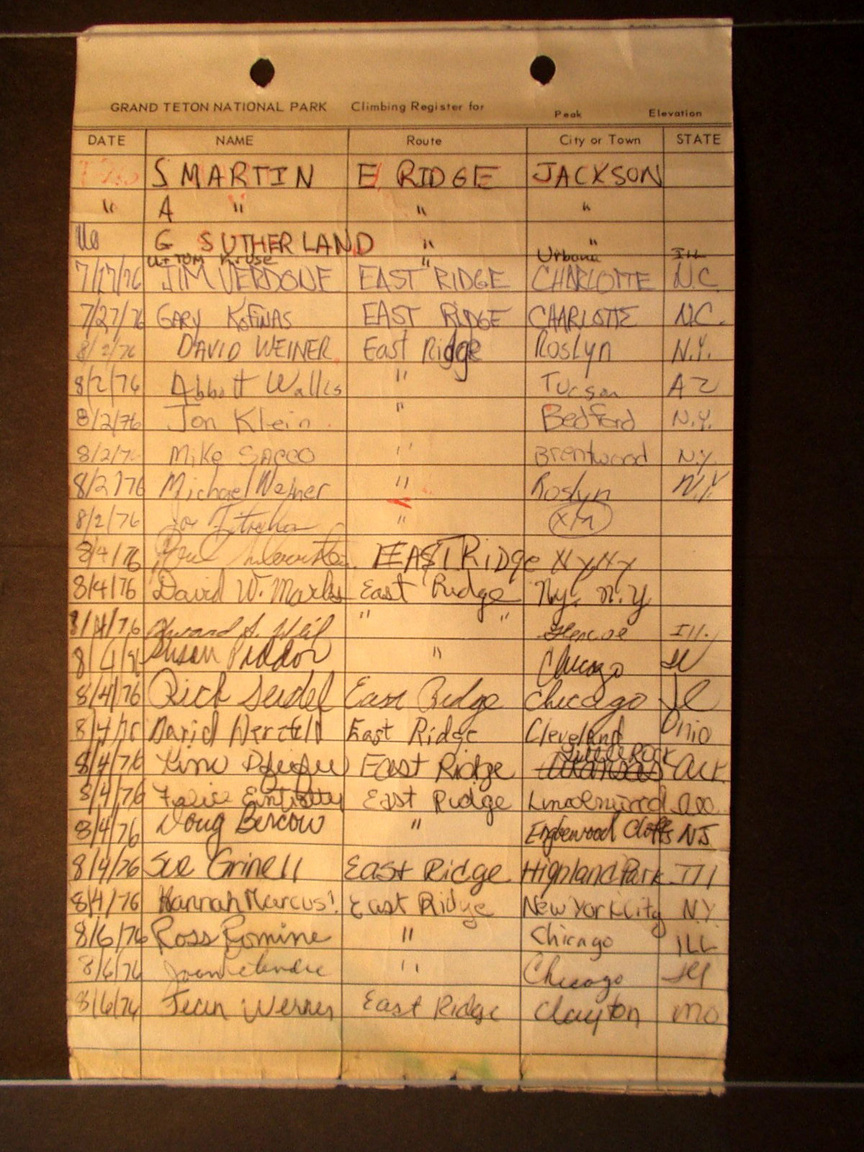 GRAND TETON NATIONAL PARK Climbing Register for Peak Elevation
DATE NAME Route City or Town STATE
S MARTIN E RIDGE JACKSON
" A " " "
G SUTHERLAND " "
w/ TOM Kruse Urbana Ill
7/17/76 JIM VERDONE EAST RIDGE CHARLOTTE N.C.
7/27/76 GARY KOFINAS EAST RIDGE CHARLOTTE N.C.
8/2/76 DAVID WEINER East Ridge Roslyn N.Y.
8/2/76 Abbott Wallis " Tucson AZ
8/2/76 Jon Klein " Bedford N.Y.
8/2/76 Mike Sacco " Brentwood N.Y.
8/2/76 Michael Weiner " Roslyn N.Y.
8/2/76 "
8/4/76 EAST Ridge NY NY
8/4/76 David W. Marks East Ridge Ny. N.Y
8/4/76 " " Glencoe Ill.
Susan " Chicago Ill
8/4/76 Rick Seidel East Ridge Chicago Il
David East Ridge Cleveland Ohio
8/4/76 East Ridge Little Rock Arkansas Ark.
8/4/76 East Ridge Lincolnwood
8/4/76 Doug Bercow " Englewood Cliffs NJ
8/4/76 Sue Grinell East Ridge Highland Park Ill
8/4/76 Hannah Marcus East Ridge New York City N.Y.
8/6/76 Ross Romine " Chicago ILL
8/6/76 " Chicago Ill
8/6/76 Jean Werner East Ridge Clayton Mo